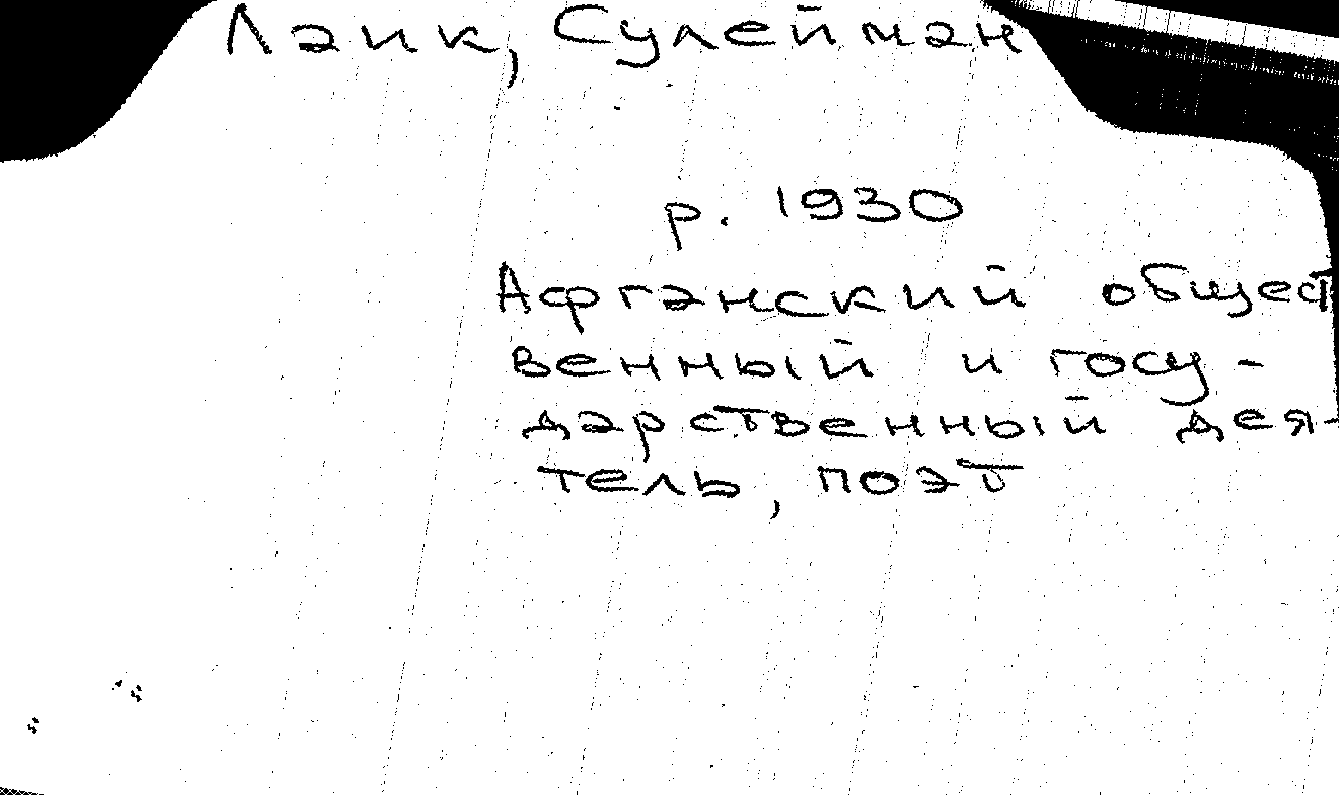 Лаик, Сулейман
р. 1930
Афганский общест
венный и госу-
дарственный дея-
тель, поэт